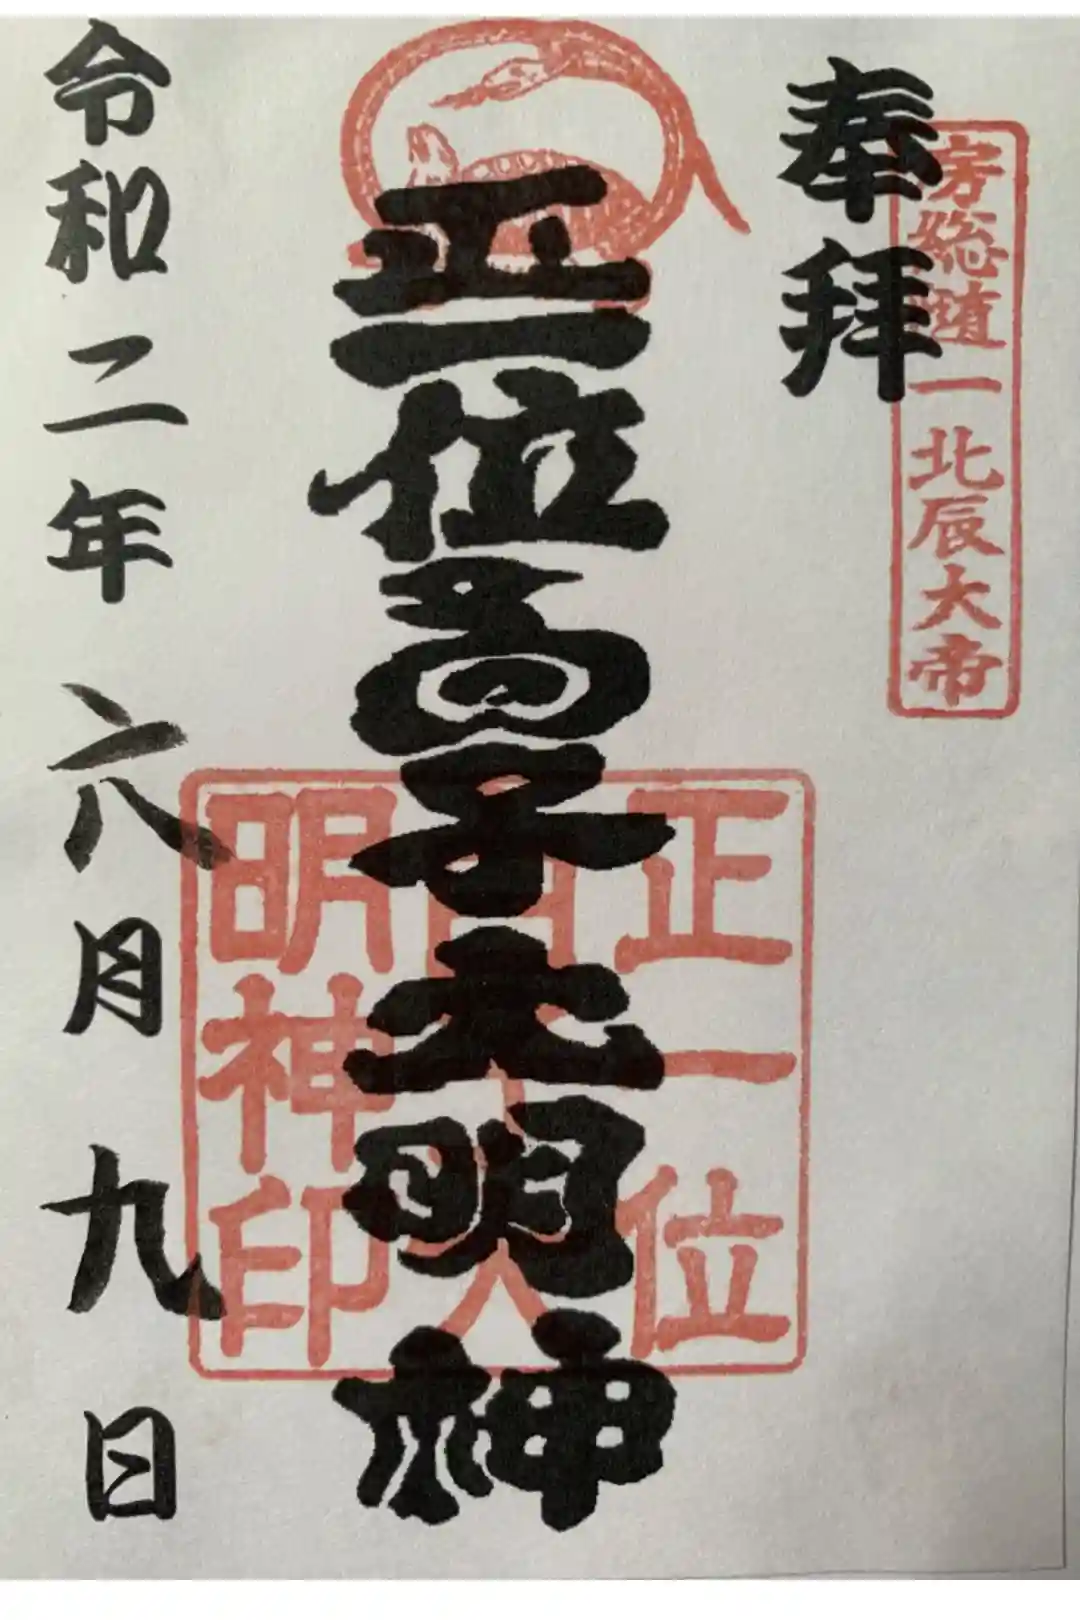 房総随一北辰大帝
奉拝
正一位白子大明神
正一位
白子大
明神印
令和二年六月九日